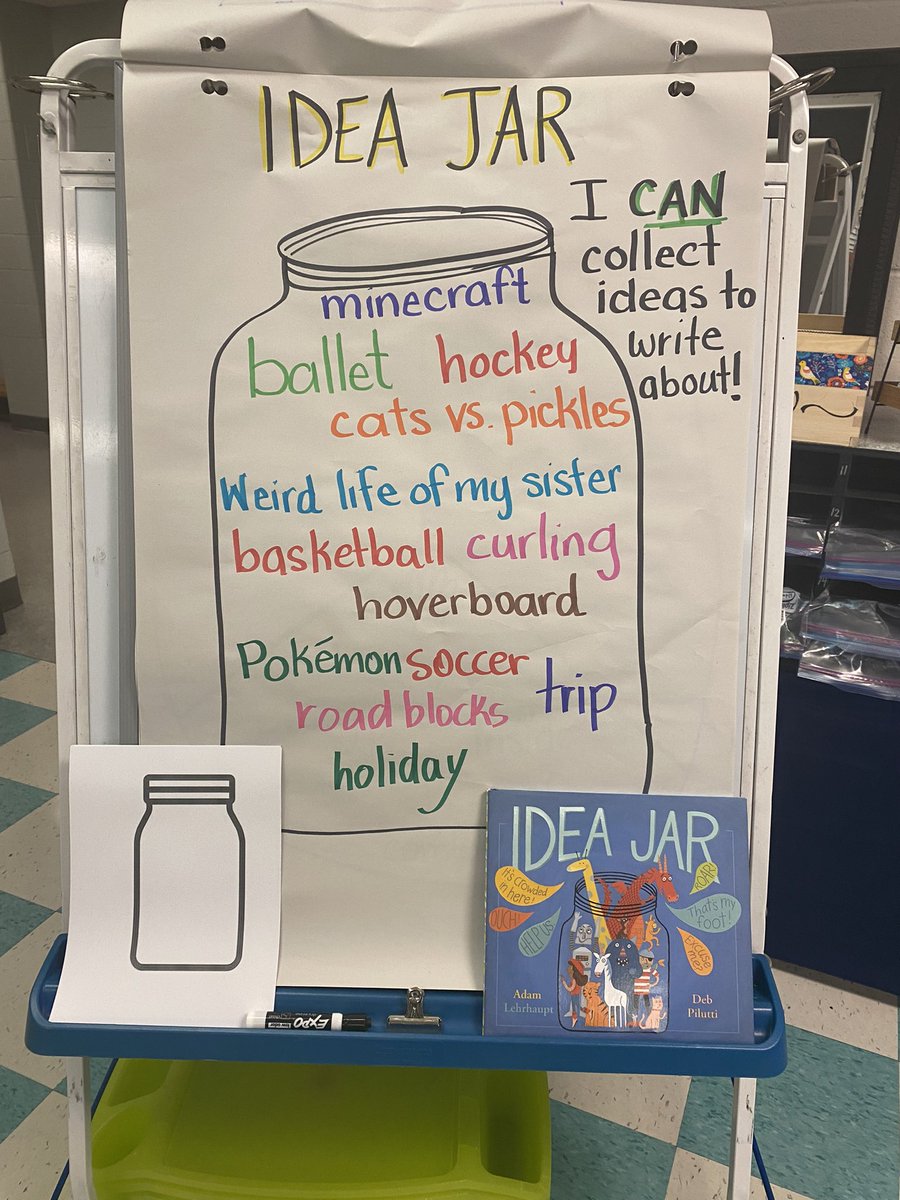 IDEA JAR
I CAN
collect
ideas to
write
about!
minecraft
ballet hockey
cats vs. pickles
Weird life of my sister
basketball curling
hoverboard
Pokémon soccer trip
road blocks
holiday
EXPO
IDEA JAR
It's crowded
in here!
ROAR!
OUCH!
HELP US!
That's my
foot!
EXCUSE
ME?
Adam
Lehrhaupt
Deb
Pilutti
11
12